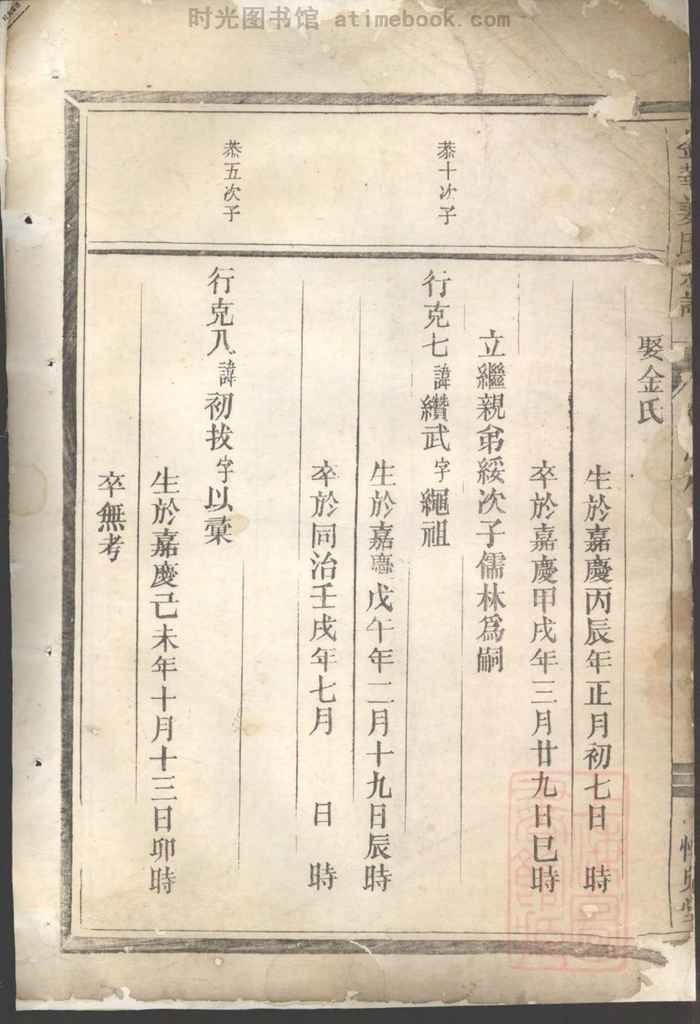 时光图书馆 atimebook.com
娶金氏
生於嘉慶丙辰年正月初七日 時
卒於嘉慶甲戌年三月廿九日巳時
立繼親弟綏次子儒林爲嗣
恭十次子
行克七諱纘武字繩祖
生於嘉慶戊午年二月十九日辰時
卒於同治壬戌年七月 日 時
恭五次子
行克八諱初拔字以彙
生於嘉慶己未年十月十三日卯時
卒無考